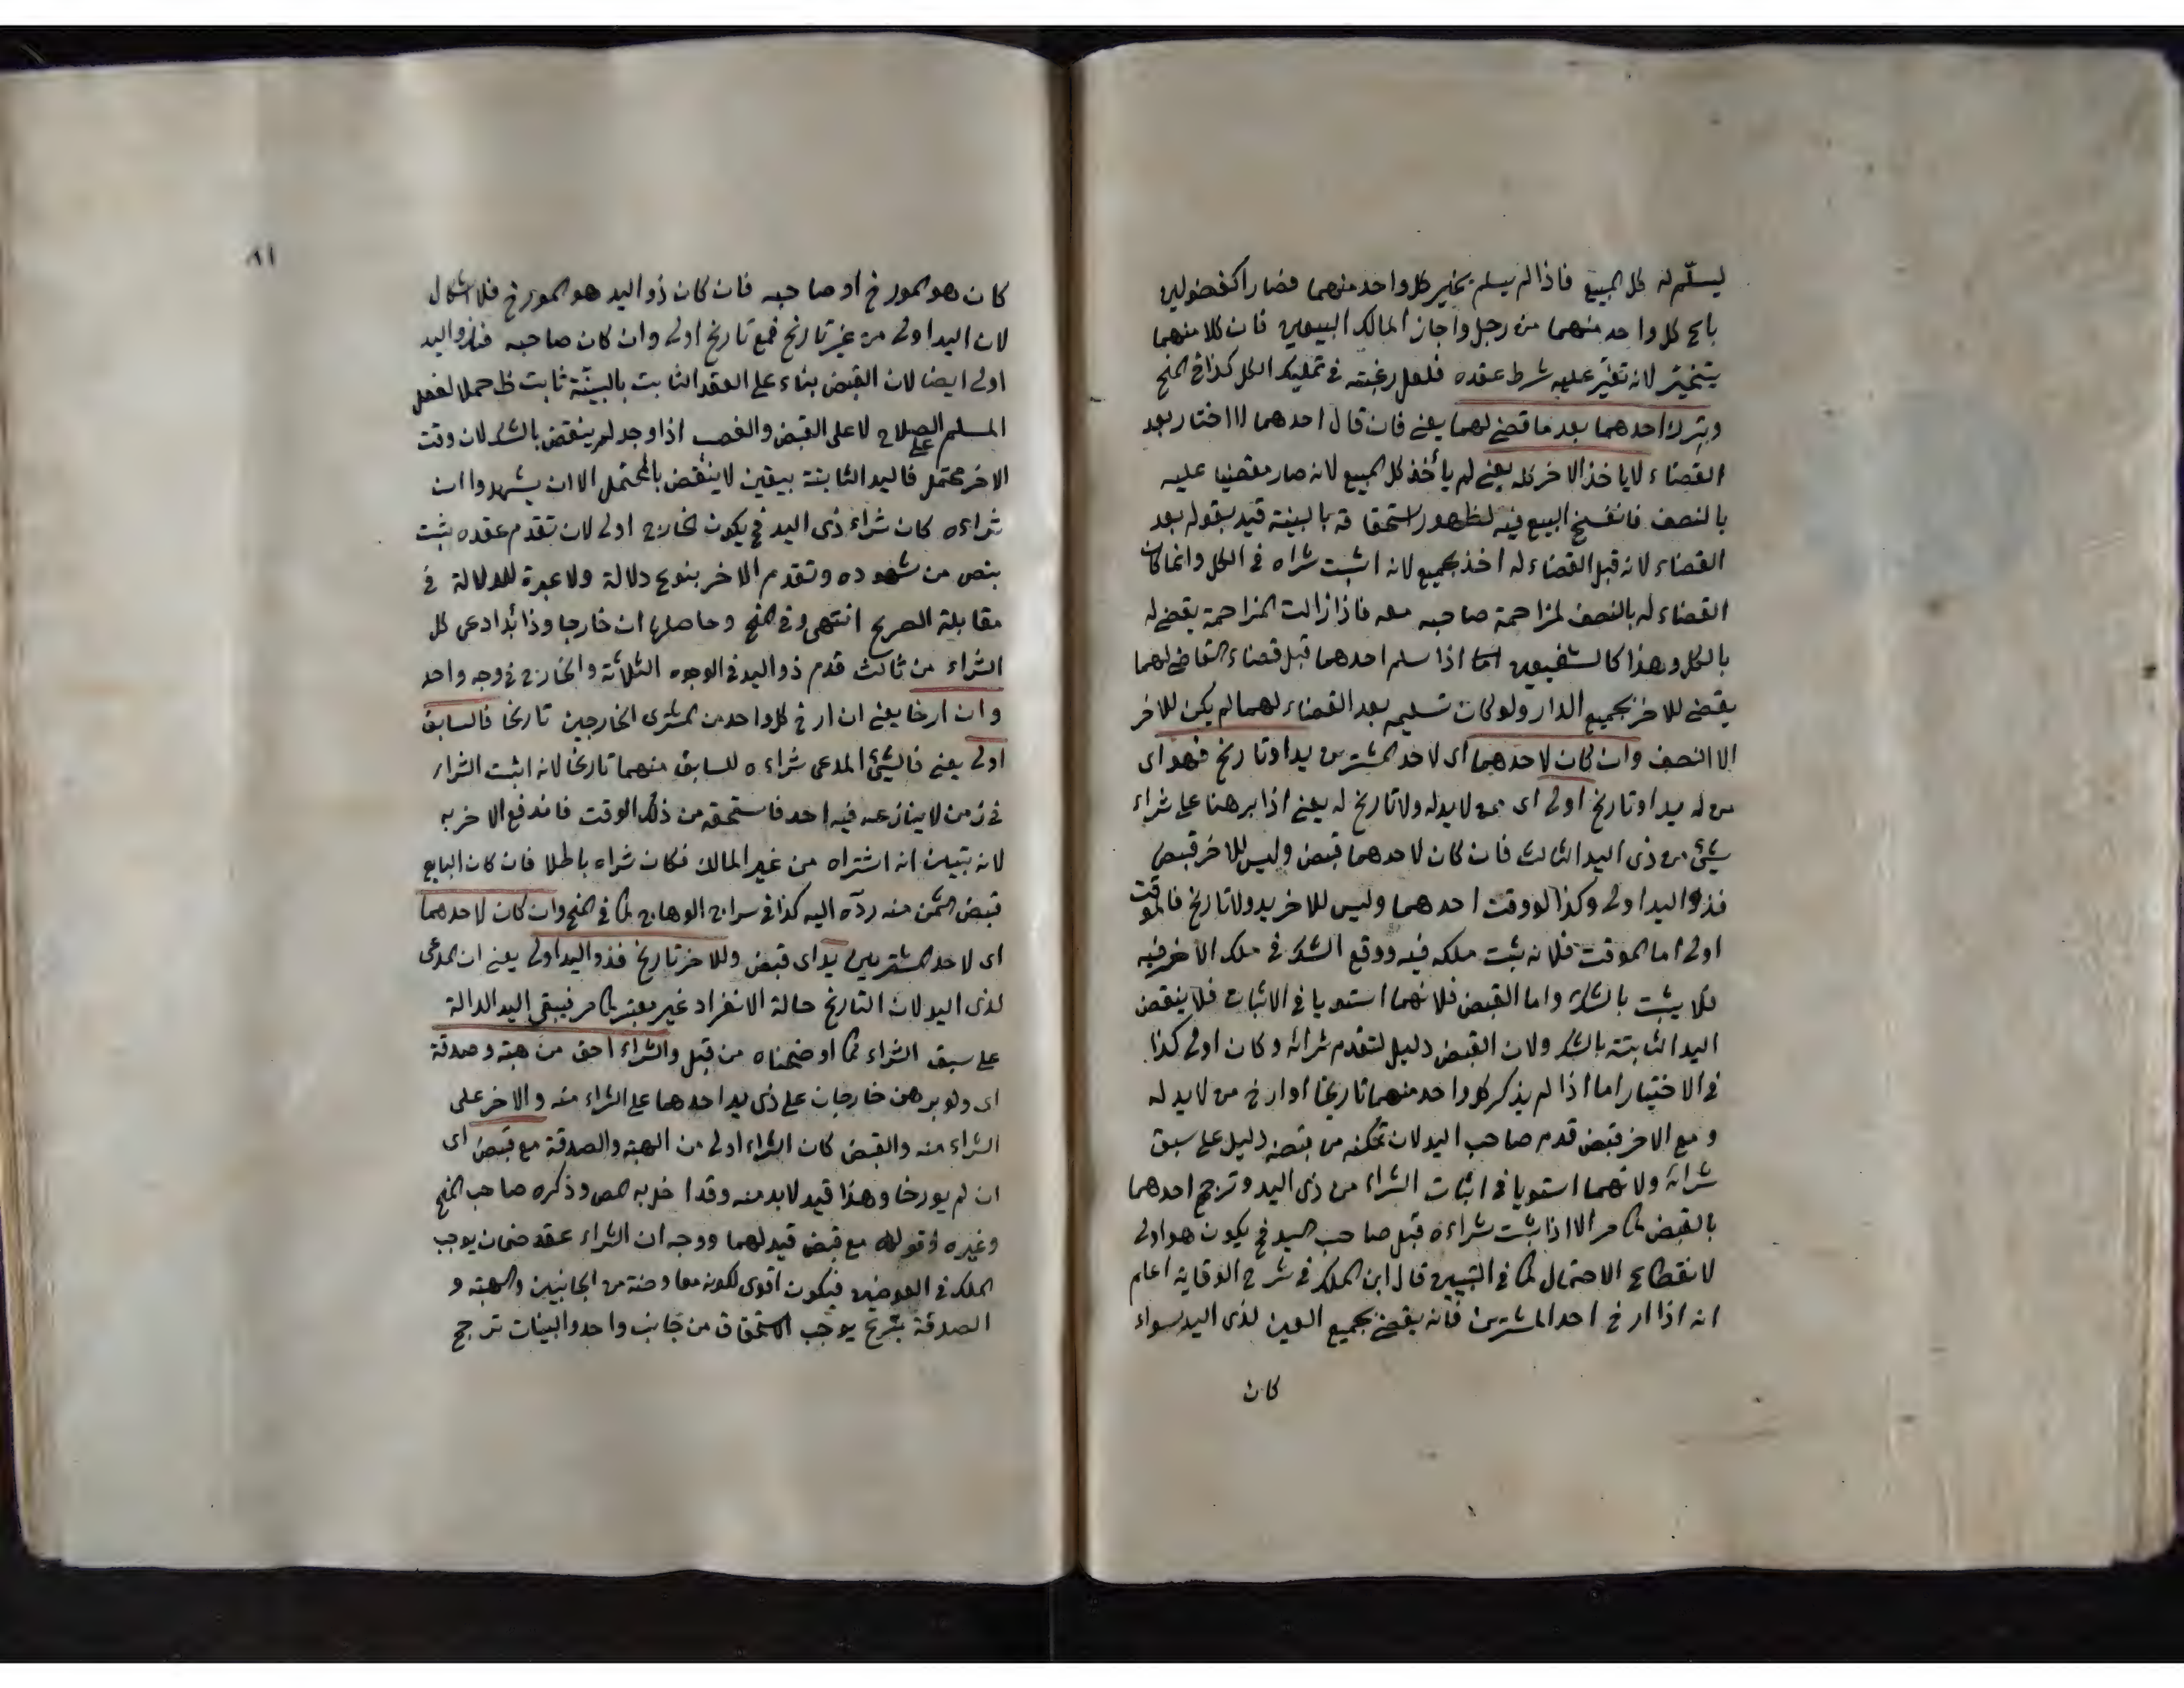 ليسلّم له كل المبيع فاذا لم يسلم يخير كل واحد منهما فصارا كفضوليين
باع كل واحد منهما من رجل واجاز المالك البيعين فان كلا منهما
يتخيّر لانه تغيّر عليه شرط عقده فلعل رغبته في تمليك الكل كذا في المنح
وبترك احدهما بعد ما قضي لهما يعني فان قال احدهما لا اختار بعد
القضاء لا ياخذ الاخر كله يعني لم يأخذ كل المبيع لانه صار مقضيا عليه
بالنصف فانفسخ البيع فيه لظهور استحقاقه بالبينة قيد بقوله بعد
القضاء لانه قبل القضاء له اخذ الجميع لانه اثبت شراه في الكل وانما كان
القضاء له بالنصف لمزاحمة صاحبه معه فاذا زالت المزاحمة يقضى له
بالكل وهذا كالشفيعين اذا سلم احدهما قبل قضاء القاضي لهما
يقضي للاخر بجميع الدار ولو كان تسليمه بعد القضاء لهما لم يكن للاخر
الا النصف وان كان لاحدهما اى لاحد المشتريين يد او تاريخ فهو اى
من له يد او تاريخ اولى اى ممن لا يد له ولا تاريخ له يعني اذا برهنا على شراء
شيئ من ذى اليد الثالث فان كان لاحدهما قبض وليس للاخر قبض
فذو اليد اولى وكذا لو وقت احدهما وليس للاخر يد ولا تاريخ فالموقت
اولى اما الموقت فلانه يثبت ملكه فيه ووقع الشك في ملك الاخر فيه
فلا يثبت بالشك واما القبض فلانهما استويا في الاثبات فلا ينقض
اليد الثابتة بالشك ولان القبض دليل لتقدم شرائه وكان اولى كذا
في الاختيار اما اذا لم يذكر كل واحد منهما تاريخا او ارخ من لا يد له
ومع الاخر قبض قدم صاحب اليد لان تمكنه من قبضه دليل على سبق
شرائه ولانهما استويا في اثبات الشراء من ذى اليد وترجح احدهما
بالقبض كما مر الا اذا ثبت شراءه قبل صاحب اليد فح يكون هو اولى
لانقطاع الاحتمال كما في التبيين قال ابن الملك في شرح الوقاية اعلم
انه اذا ارخ احد المشتريين فانه يقضي بجميع العين لذى اليد سواء
كان
٨١
كان هو المورخ او صاحبه فان كان ذو اليد هو المورخ فلا اشكال
لان اليد اولى من غير تاريخ فمع تاريخ اولى وان كان صاحبه فذو اليد
اولى ايضا لان القبض بناء على العقد الثابت بالبينّة ثابت ظ حملا لفعل
المسلم على الصلاح لا على القبض والغصب اذا وجد لم ينقض بالشك لان وقت
الاخر محتمل فاليد الثابتة بيقين لا ينقض بالمحتمل الا ان يشهدوا ان
شراءه كان شراء ذى اليد فح يكون الخارج اولى لان تقدم عقده يثبت
بنص من شهوده وتقدم الاخر بنوع دلالة ولا عبرة للدلالة في
مقابلة الصريح انتهى وفي المنح وحاصلها ان خارجا وذا يد ادعى كل
الشراء من ثالث قدم ذو اليد في الوجوه الثلاثة والخارج في وجه واحد
وان ارخا يعني ان ارخ كل واحد من المشترى الخارجين تاريخا فالسابق
اولى يعني فالشيئ المدعى شراءه للسابق منهما تاريخا لانه اثبت الشراء
في زمن لا ينازعه فيه احد فاستحقه من ذلك الوقت فاندفع الاخر به
لانه تبين انه اشتراه من غير المالك فكان شراه باطلا فان كان البايع
قبض الثمن منه ردّه اليه كذا في سراج الوهاج كما في المنح وان كان لاحدهما
اى لاحد المشتريين يد اى قبض وللاخر تاريخ فذو اليد اولى يعني ان المدعى
لذى اليد لان التاريخ حالة الانفراد غير معتبر كما مر فيبقى اليد الدالة
على سبق الشراء كما اوضحناه من قبل والشراء احق من هبة وصدقة
اى ولو برهن خارجان على ذى يد احدهما على الشراء منه والاخر على
الشراء منه والقبض كان الشراء اولى من الهبة والصدقة مع قبض اى
ان لم يورخا وهذا قيد لا بد منه وقد اخل به المص وذكره صاحب المنح
وغيره وقوله مع قبض قيد لهما ووجه ان الشراء عقد ضمان يوجب
الملك في العوضين فيكون اقوى لكونه معاوضة من الجانبين والهبة و
الصدقة تبرع يوجب الاستحقاق من جانب واحد والبينات ترجح